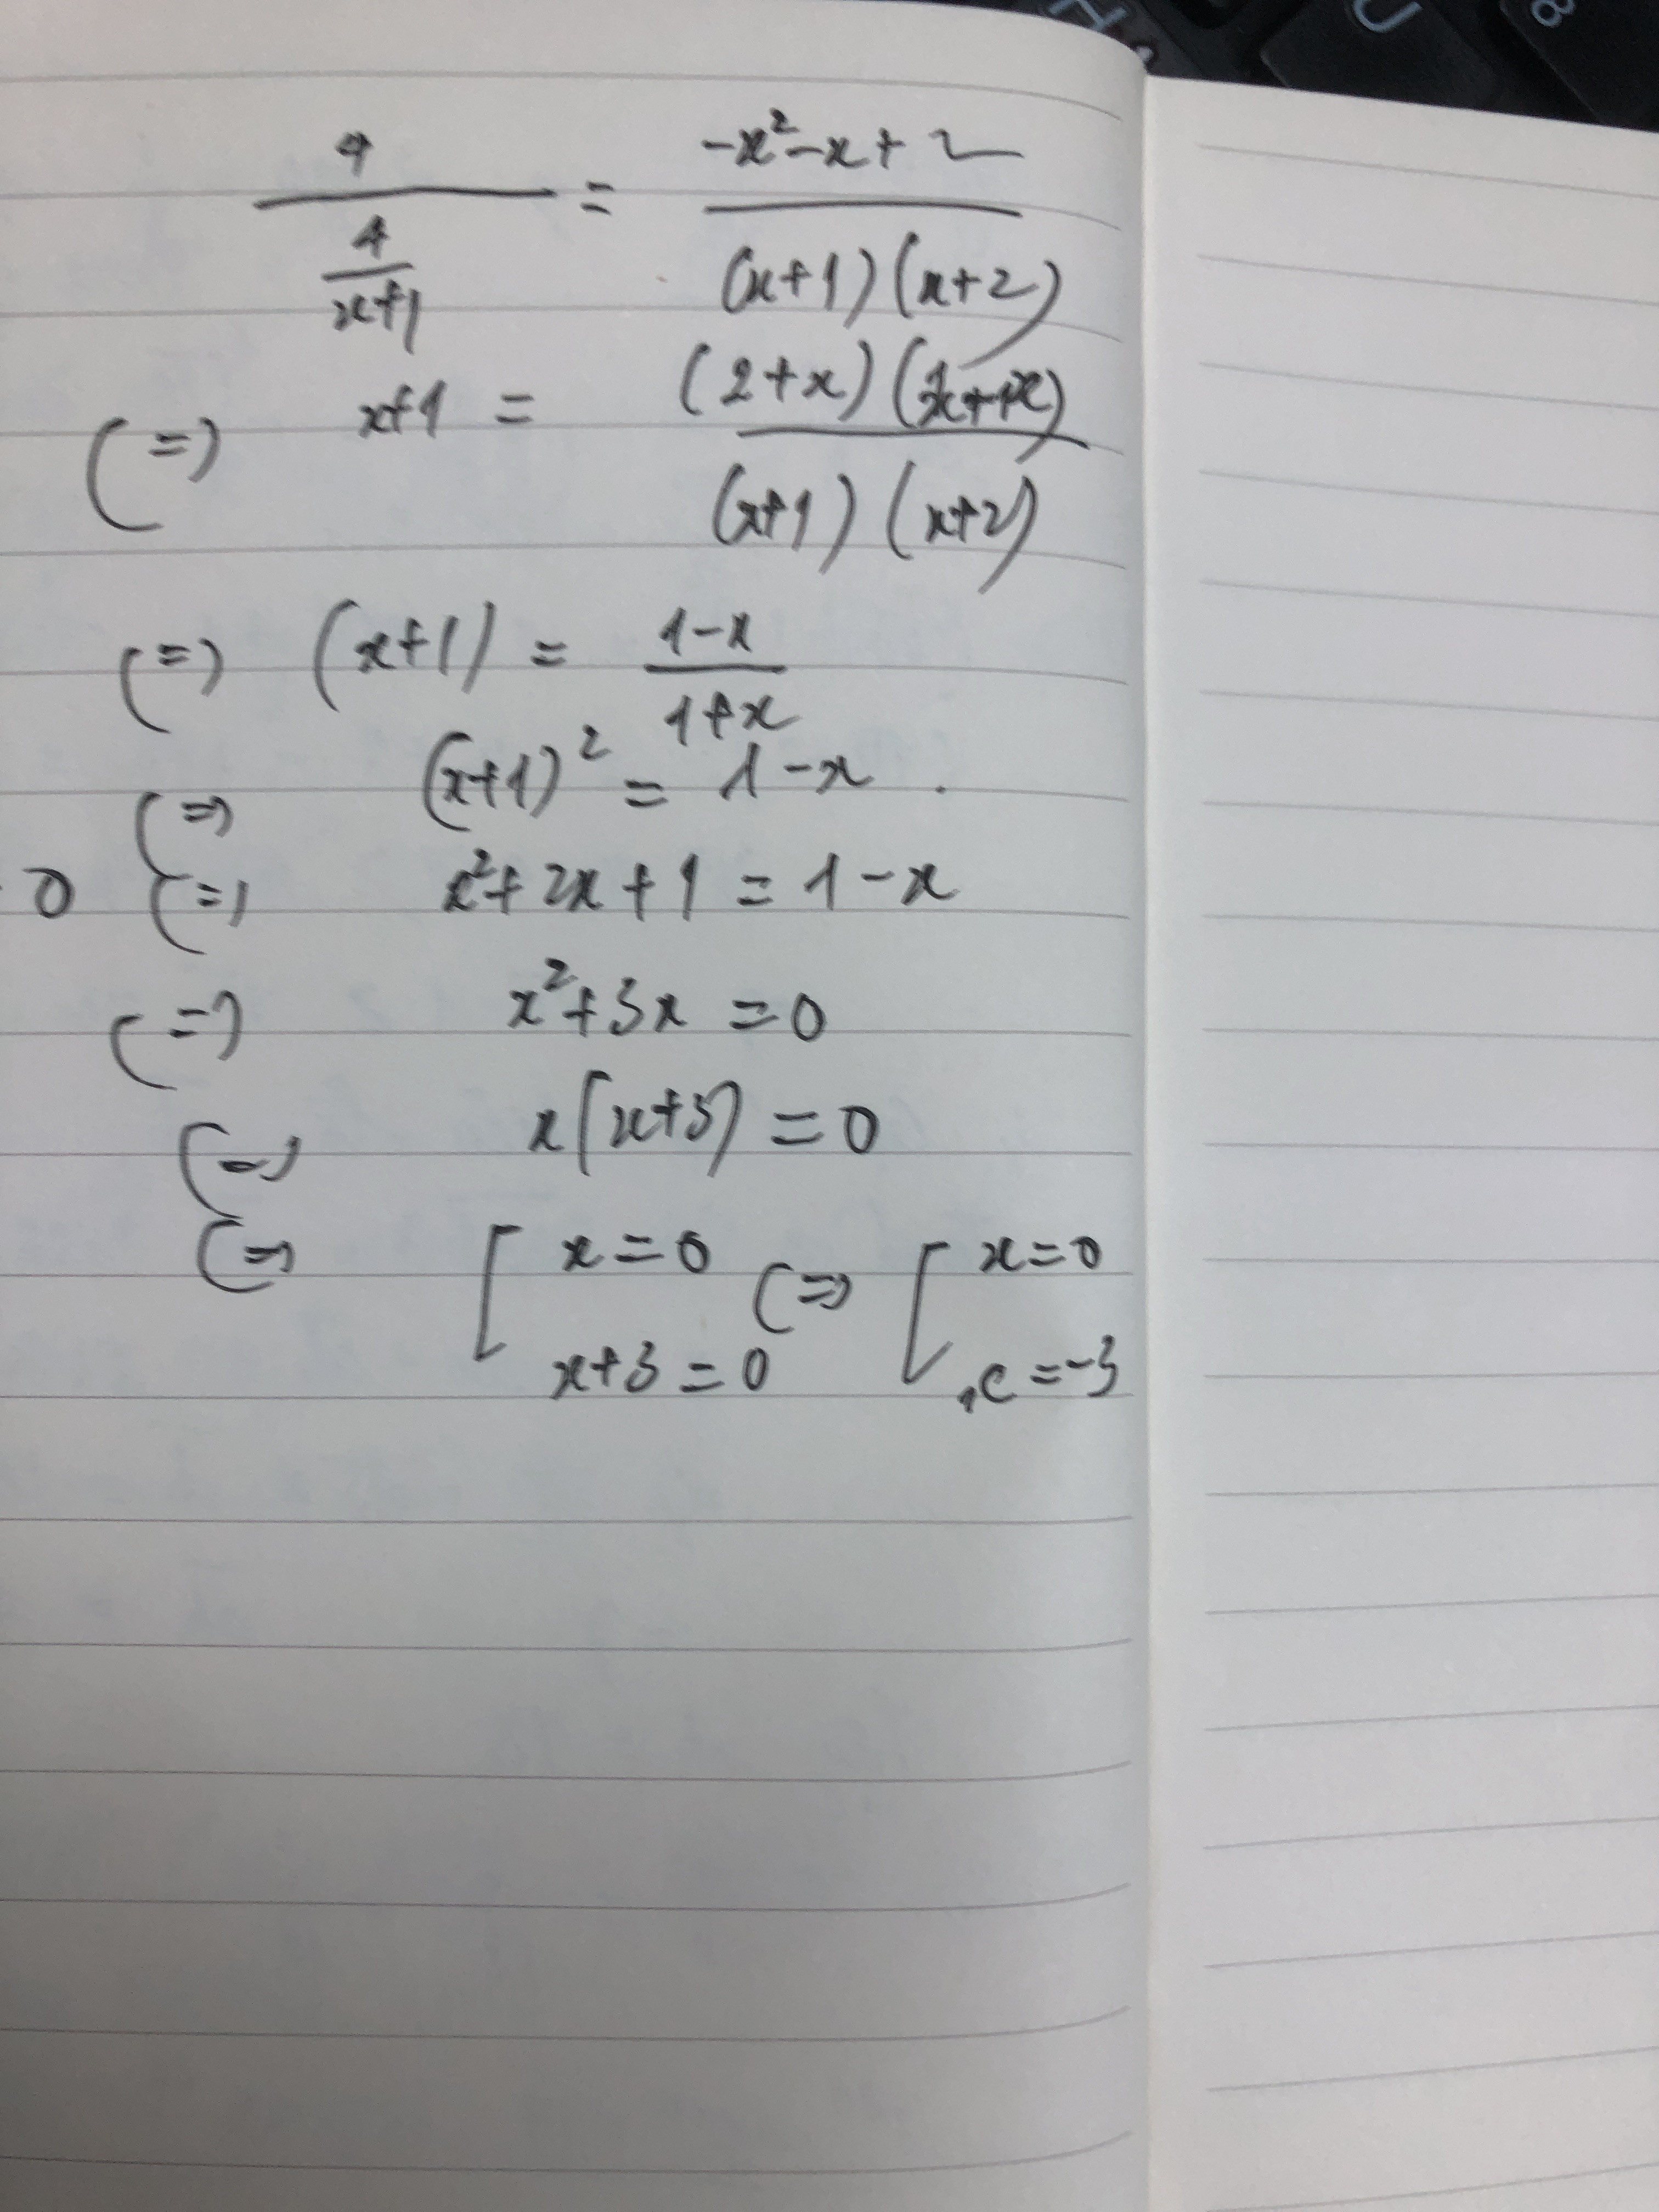 H U 8
4 / (4 / (x+1)) = (-x²-x+2) / ((x+1)(x+2))
(=) x+1 = (2+x) / ((x+1)(x+2))
(=) (x+1) = (1-x) / (1+x)
(=) (x+1)² = 1-x.
0 (=) x²+2x+1=1-x
(=) x²+3x=0
(=) x(x+3)=0
(=) [ x=0 x+3=0 (=) [ x=0 x=-3